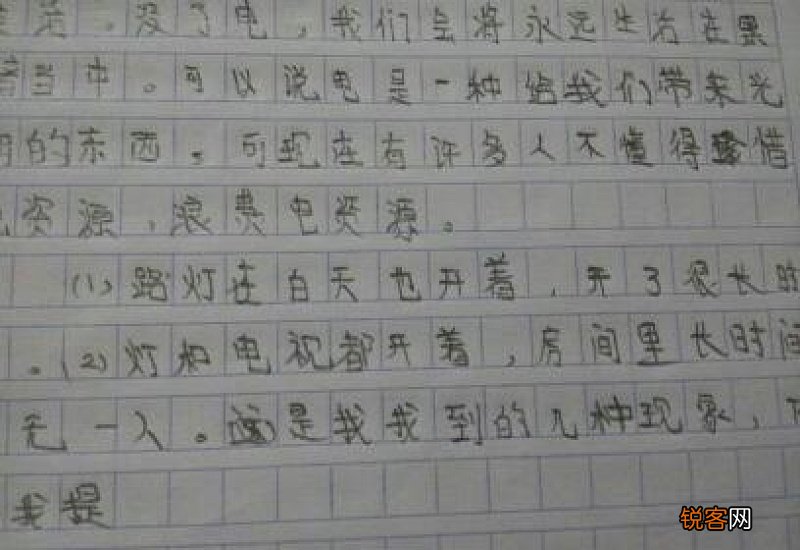 ，没了电，我们会将永远生活在黑
当中。可以说电是一种给我们带来光
的东西。可现在有许多人不懂得珍惜
资源，浪费电资源。
(1)路灯在白天也开着，开了很长时
。(2)灯和电视都开着，房间里长时间
无一人。这是我找到的几种现象，
我提
锐客网